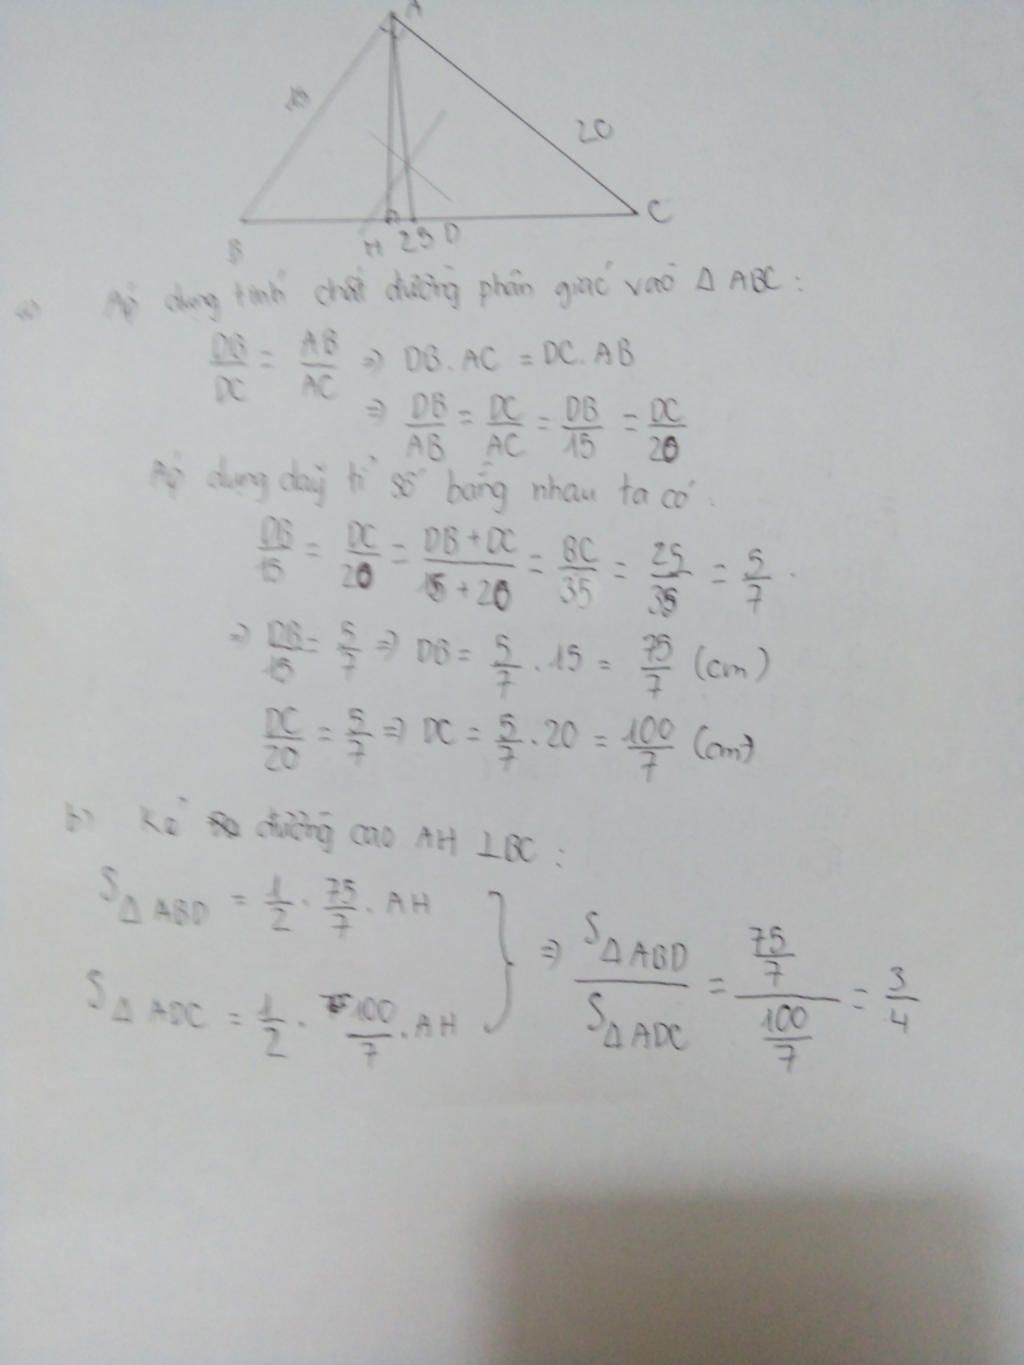 A
20
B
H 25 D
C
a) Áp dụng tính chất đường phân giác vào Δ ABC:
DB/DC = AB/AC ⇒ DB.AC = DC.AB
⇒ DB/AB = DC/AC = DB/15 = DC/20
Áp dụng dãy tỉ số bằng nhau ta có.
DB/15 = DC/20 = DB+DC/15+20 = BC/35 = 25/35 = 5/7.
⇒ DB/15 = 5/7 ⇒ DB = 5/7 . 15 = 75/7 (cm)
DC/20 = 5/7 ⇒ DC = 5/7 . 20 = 100/7 (cm)
b) Kẻ đường cao AH ⊥BC:
SΔ ABD = 1/2 . 75/7 . AH
SΔ ADC = 1/2 . 100/7 . AH
} ⇒ SΔABD/SΔADC = 75/7 / 100/7 = 3/4